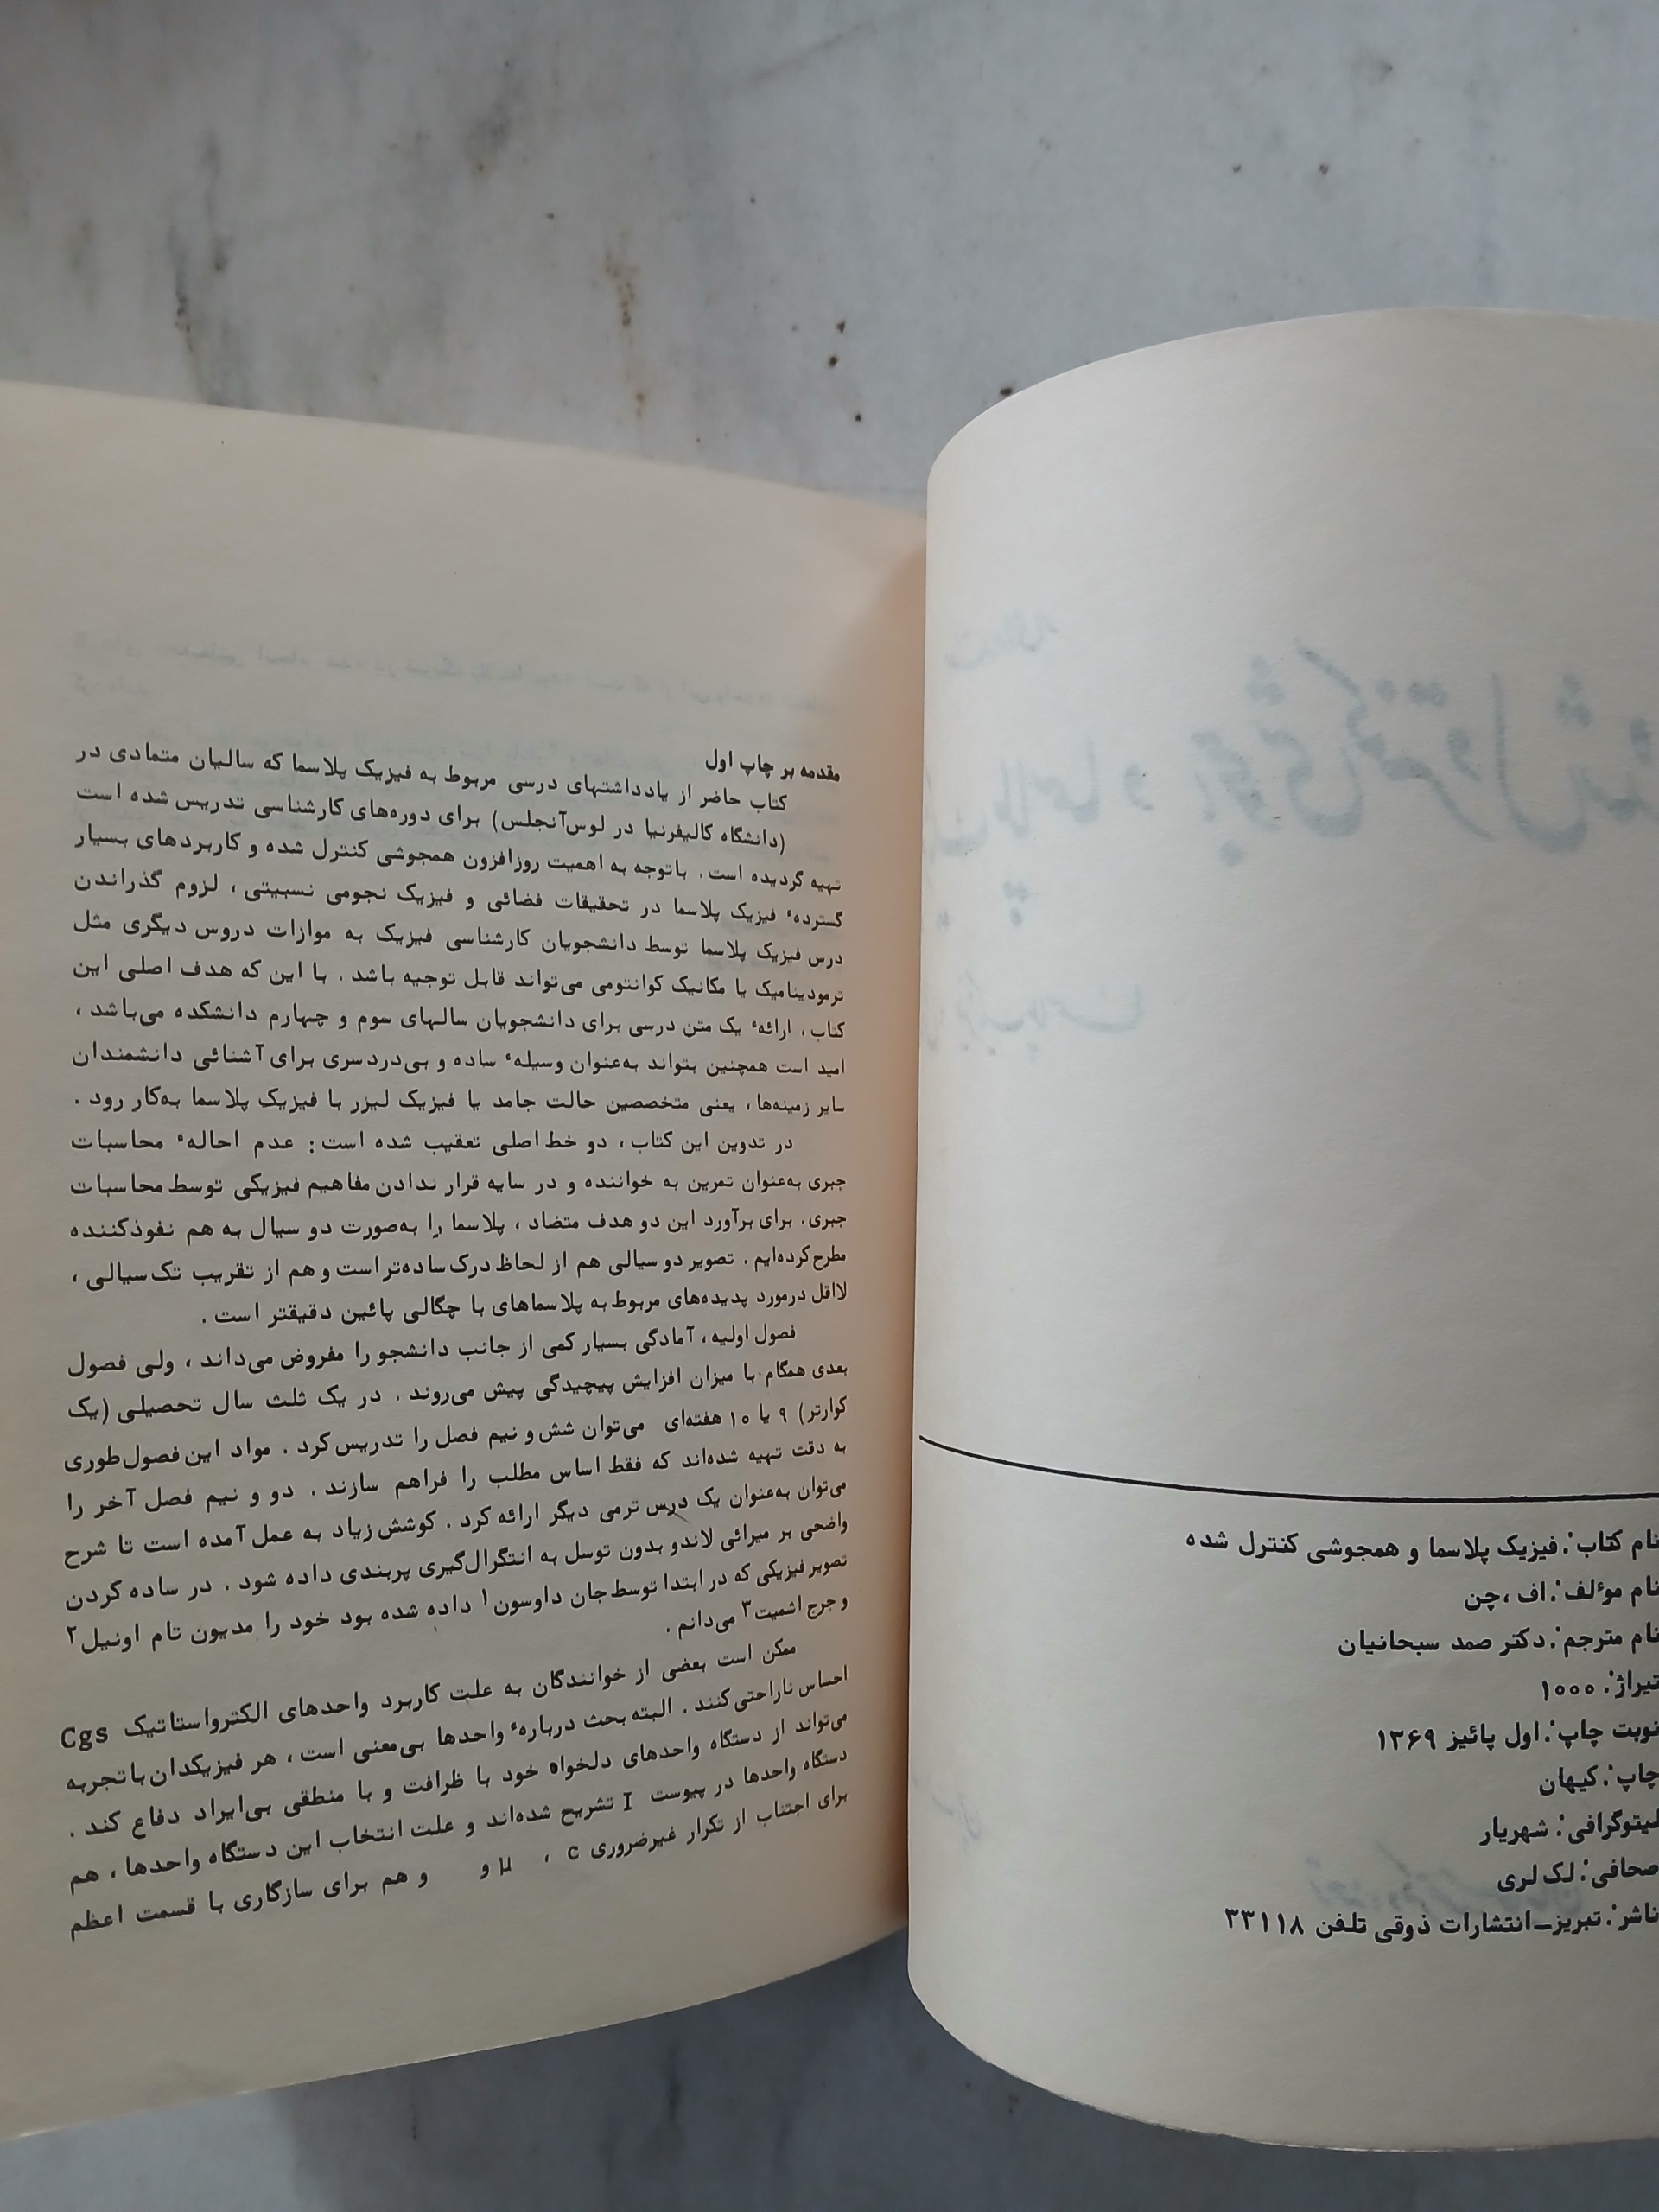 نام کتاب: فیزیک پلاسما و همجوشی کنترل شده
نام موٴلف: اف، چن
نام مترجم: دکتر صمد سبحانیان
تیراژ: ۱۰۰۰
نوبت چاپ: اول پائیز ۱۳۶۹
چاپ: کیهان
لیتوگرافی: شهریار
صحافی: لک لری
ناشر: تبریز–انتشارات ذوقی تلفن ۳۳۱۱۸
مقدمه بر چاپ اول
کتاب حاضر از یادداشتهای درسی مربوط به فیزیک پلاسما که سالیان متمادی در
(دانشگاه کالیفرنیا در لوس‌آنجلس) برای دوره‌های کارشناسی تدریس شده است
تهیه گردیده است. باتوجه به اهمیت روزافزون همجوشی کنترل شده و کاربردهای بسیار
گستردهٔ فیزیک پلاسما در تحقیقات فضائی و فیزیک نجومی نسبیتی، لزوم گذراندن
درس فیزیک پلاسما توسط دانشجویان کارشناسی فیزیک به موازات دروس دیگری مثل
ترمودینامیک یا مکانیک کوانتومی می‌تواند قابل توجیه باشد. با این که هدف اصلی این
کتاب، ارائهٔ یک متن درسی برای دانشجویان سالهای سوم و چهارم دانشکده می‌باشد،
امید است همچنین بتواند به‌عنوان وسیلهٔ ساده و بی‌دردسری برای آشنائی دانشمندان
سایر زمینه‌ها، یعنی متخصصین حالت جامد یا فیزیک لیزر با فیزیک پلاسما به‌کار رود.
در تدوین این کتاب، دو خط اصلی تعقیب شده است: عدم احالهٔ محاسبات
جبری به‌عنوان تمرین به خواننده و در سایه قرار ندادن مفاهیم فیزیکی توسط محاسبات
جبری. برای برآورد این دو هدف متضاد، پلاسما را به‌صورت دو سیال به هم نفوذکننده
مطرح کرده‌ایم. تصویر دو سیالی هم از لحاظ درک ساده‌تر است و هم از تقریب تک‌سیالی،
لااقل درمورد پدیده‌های مربوط به پلاسماهای با چگالی پائین دقیقتر است.
فصول اولیه، آمادگی بسیار کمی از جانب دانشجو را مفروض می‌داند، ولی فصول
بعدی همگام با میزان افزایش پیچیدگی پیش می‌روند. در یک ثلث سال تحصیلی (یک
کوارتر) ۹ یا ۱۰ هفته‌ای می‌توان شش و نیم فصل را تدریس کرد. مواد این فصول طوری
به دقت تهیه شده‌اند که فقط اساس مطلب را فراهم سازند. دو و نیم فصل آخر را
می‌توان به‌عنوان یک درس ترمی دیگر ارائه کرد. کوشش زیاد به عمل آمده است تا شرح
واضحی بر میرائی لاندو بدون توسل به انتگرال‌گیری پربندی داده شود. در ساده کردن
تصویر فیزیکی که در ابتدا توسط جان داوسون۱ داده شده بود خود را مدیون تام اونیل۲
و جرج اشمیت۳ می‌دانم.
ممکن است بعضی از خوانندگان به علت کاربرد واحدهای الکترواستاتیک Cgs
احساس ناراحتی کنند. البته بحث دربارهٔ واحدها بی‌معنی است، هر فیزیکدان باتجربه
می‌تواند از دستگاه واحدهای دلخواه خود با ظرافت و با منطقی بی‌ایراد دفاع کند.
دستگاه واحدها در پیوست I تشریح شده‌اند و علت انتخاب این دستگاه واحدها، هم
برای اجتناب از تکرار غیرضروری c ، μ و و هم برای سازگاری با قسمت اعظم